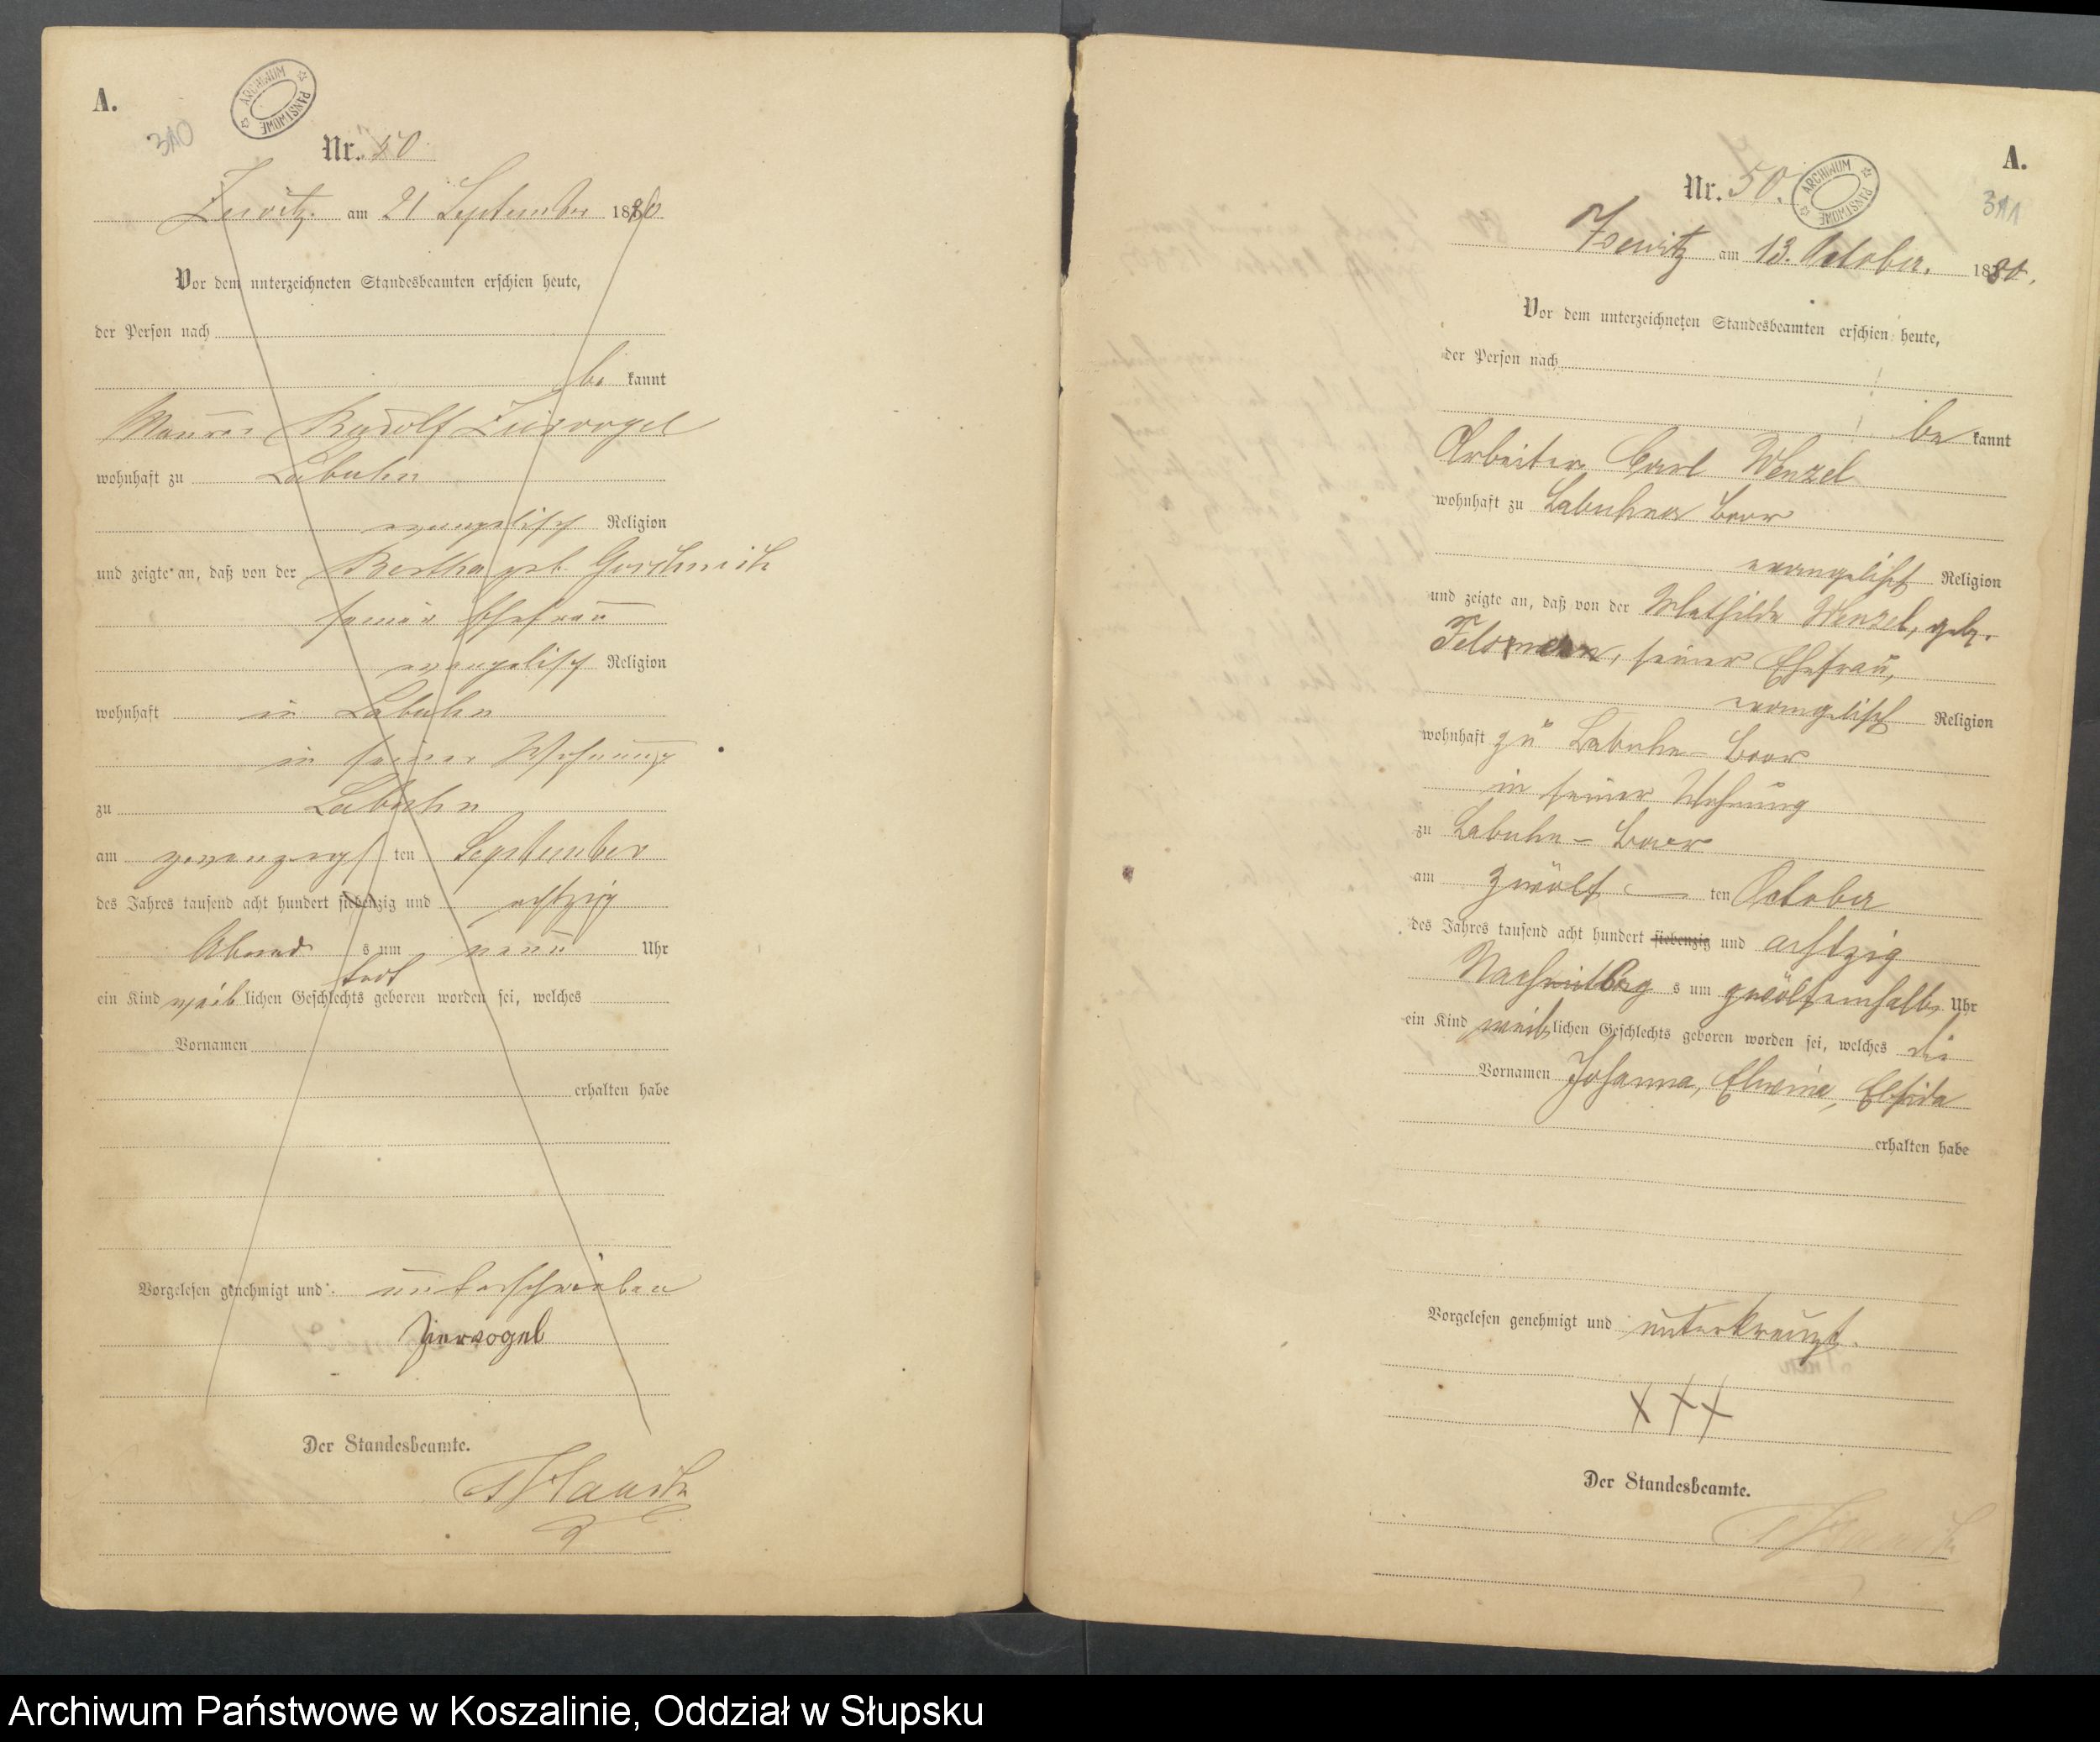 A.
ARCHIWUM PAŃSTWOWE
310
Nr. 50
Zewitz am 21 September 1880
Vor dem unterzeichneten Standesbeamten erschien heute,
der Person nach
be kannt
Maurer Rudolf Ziervogel
wohnhaft zu Labuhn
evangelisch Religion
und zeigte an, daß von der Bertha geb.
seiner Ehefrau
evangelisch Religion
wohnhaft in Labuhn
in seiner Wohnung
zu Labuhn
am zwanzigs ten September
des Jahres tausend acht hundert siebenzig und achtzig
Abend s um neun Uhr
todt
ein Kind weib lichen Geschlechts geboren worden sei, welches
Vornamen
erhalten habe
Vorgelesen genehmigt und unterschrieben
Ziervogel
Der Standesbeamte.
A.
ARCHIWUM PAŃSTWOWE
311
Nr. 50.
Zewitz am 13. October. 1880.
Vor dem unterzeichneten Standesbeamten erschien heute,
der Person nach
be kannt
Arbeiter Carl Wenzel
wohnhaft zu Labuhn
evangelisch Religion
und zeigte an, daß von der Mathilde Wenzel, geb.
seiner Ehefrau,
evangelisch Religion
wohnhaft zu Labuhn-
in seiner Wohnung
zu Labuhn-
am zwölf ten October
des Jahres tausend acht hundert siebenzig und achtzig
Nachmittag s um Uhr
ein Kind weib lichen Geschlechts geboren worden sei, welches die
Vornamen Johanna, Elwine,
erhalten habe
Vorgelesen genehmigt und unterkreuzt.
+++
Der Standesbeamte.
Archiwum Państwowe w Koszalinie, Oddział w Słupsku